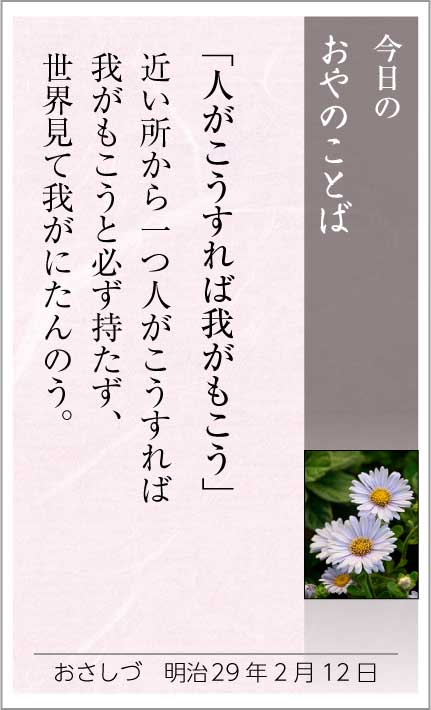 今日の
おやのことば
「人がこうすれば我がもこう」
近い所から一つ人がこうすれば
我がもこうと必ず持たず、
世界見て我がにたんのう。
おさしづ　明治29年2月12日